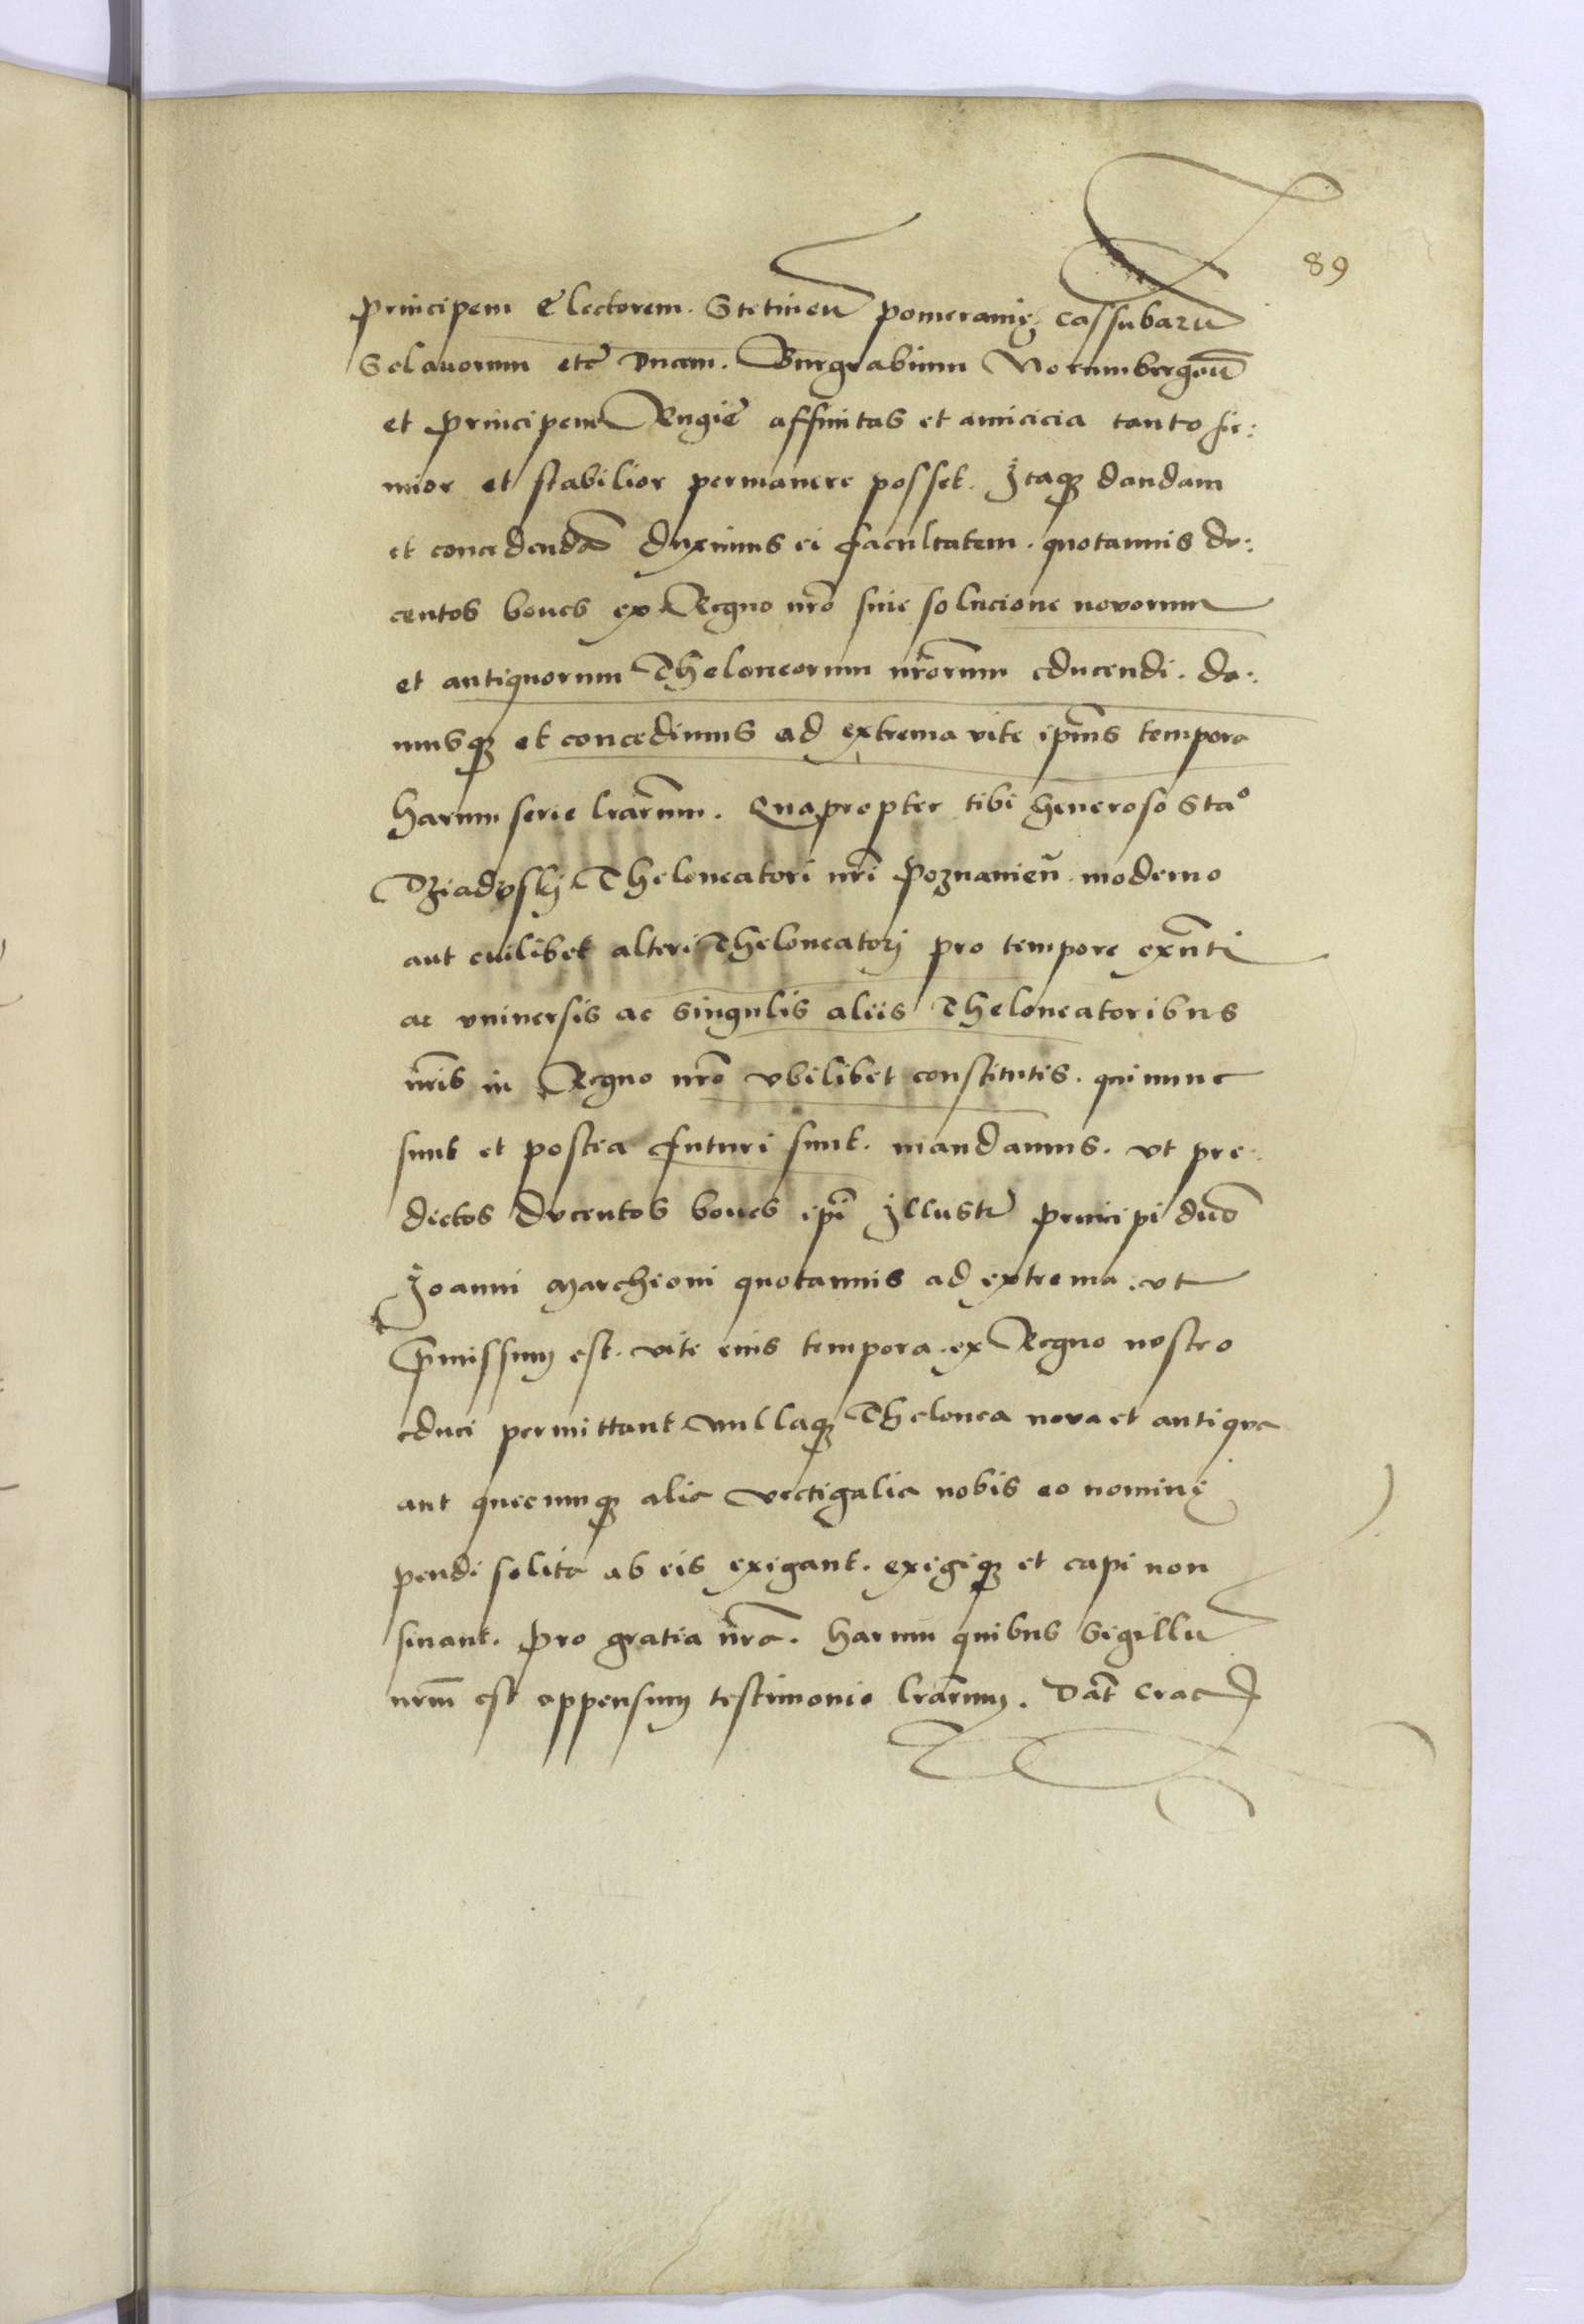 89
principem Electorem. Stetineñ pomeranię. Cassubarū
Sclauorum etc̄ Ducem. Burgrabium Norembergeñ
et principem Rugiē affinitas et amicicia tanto fir:
mior et stabilior permanere posset. Itaq̢ dandam
et concedendā duximus ei facultatem. quotannis du:
centos boues ex Regno nr̄o sine solucione novorum
et antiquorum Theloneorum nr̄orum educendi. da:
musq̢ et concedimus ad extrema vite ip̄ius tempora
harum serie lr̄arum. Quapropter tibi Generoso Sta°
Theloneatori nr̄i Poznanieñ. moderno
aut cuilibet alteri Theloneatorj pro tempore exn̄ti
ac vniuersis ac singulis aliis Theloneatoribus
nr̄is in Regno nr̄o vbilibet constitutis. qui nunc
sunt et postea futuri sunt. mandamus. vt pre:
dictos ducentos boues ip̄i Illustr̄ principi dn̄o
Joanni Marchioni quotannis ad extrema. vt
p̄missum est. vite eius tempora. ex Regno nostro
educi permittant nullaq̢ Thelonea nova et antiqva
aut quecunq̢ alia vectigalia nobis eo nominę
pendi solita ab eis exigant. exigiq̢ et capi non
sinant. pro gratia nr̄a. harum quibus Sigillū
nr̄m est appensum testimonio lr̄arum. Dat̄ Crac̄